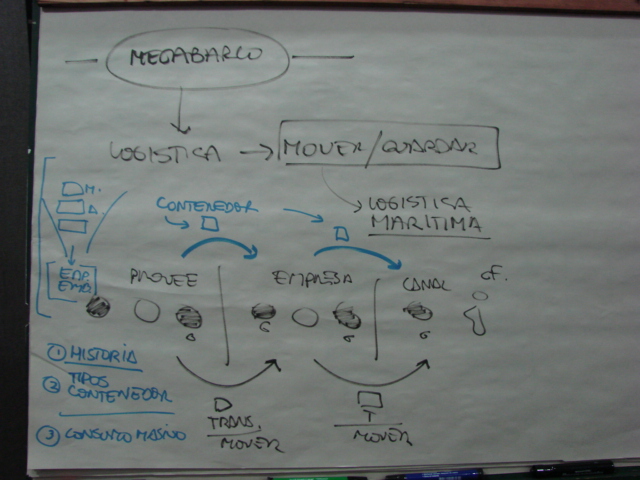 MEGABARCO
LOGISTICA → MOVER/GUARDAR
LOGISTICA
MARITIMA
CONTENEDOR
M.
A
PROVEE
EMPRESA
CANAL
CF.
G
G
① HISTORIA
② TIPOS
CONTENEDOR
③ CONSUMO MASIVO
TRANS.
MOVER
T
MOVER